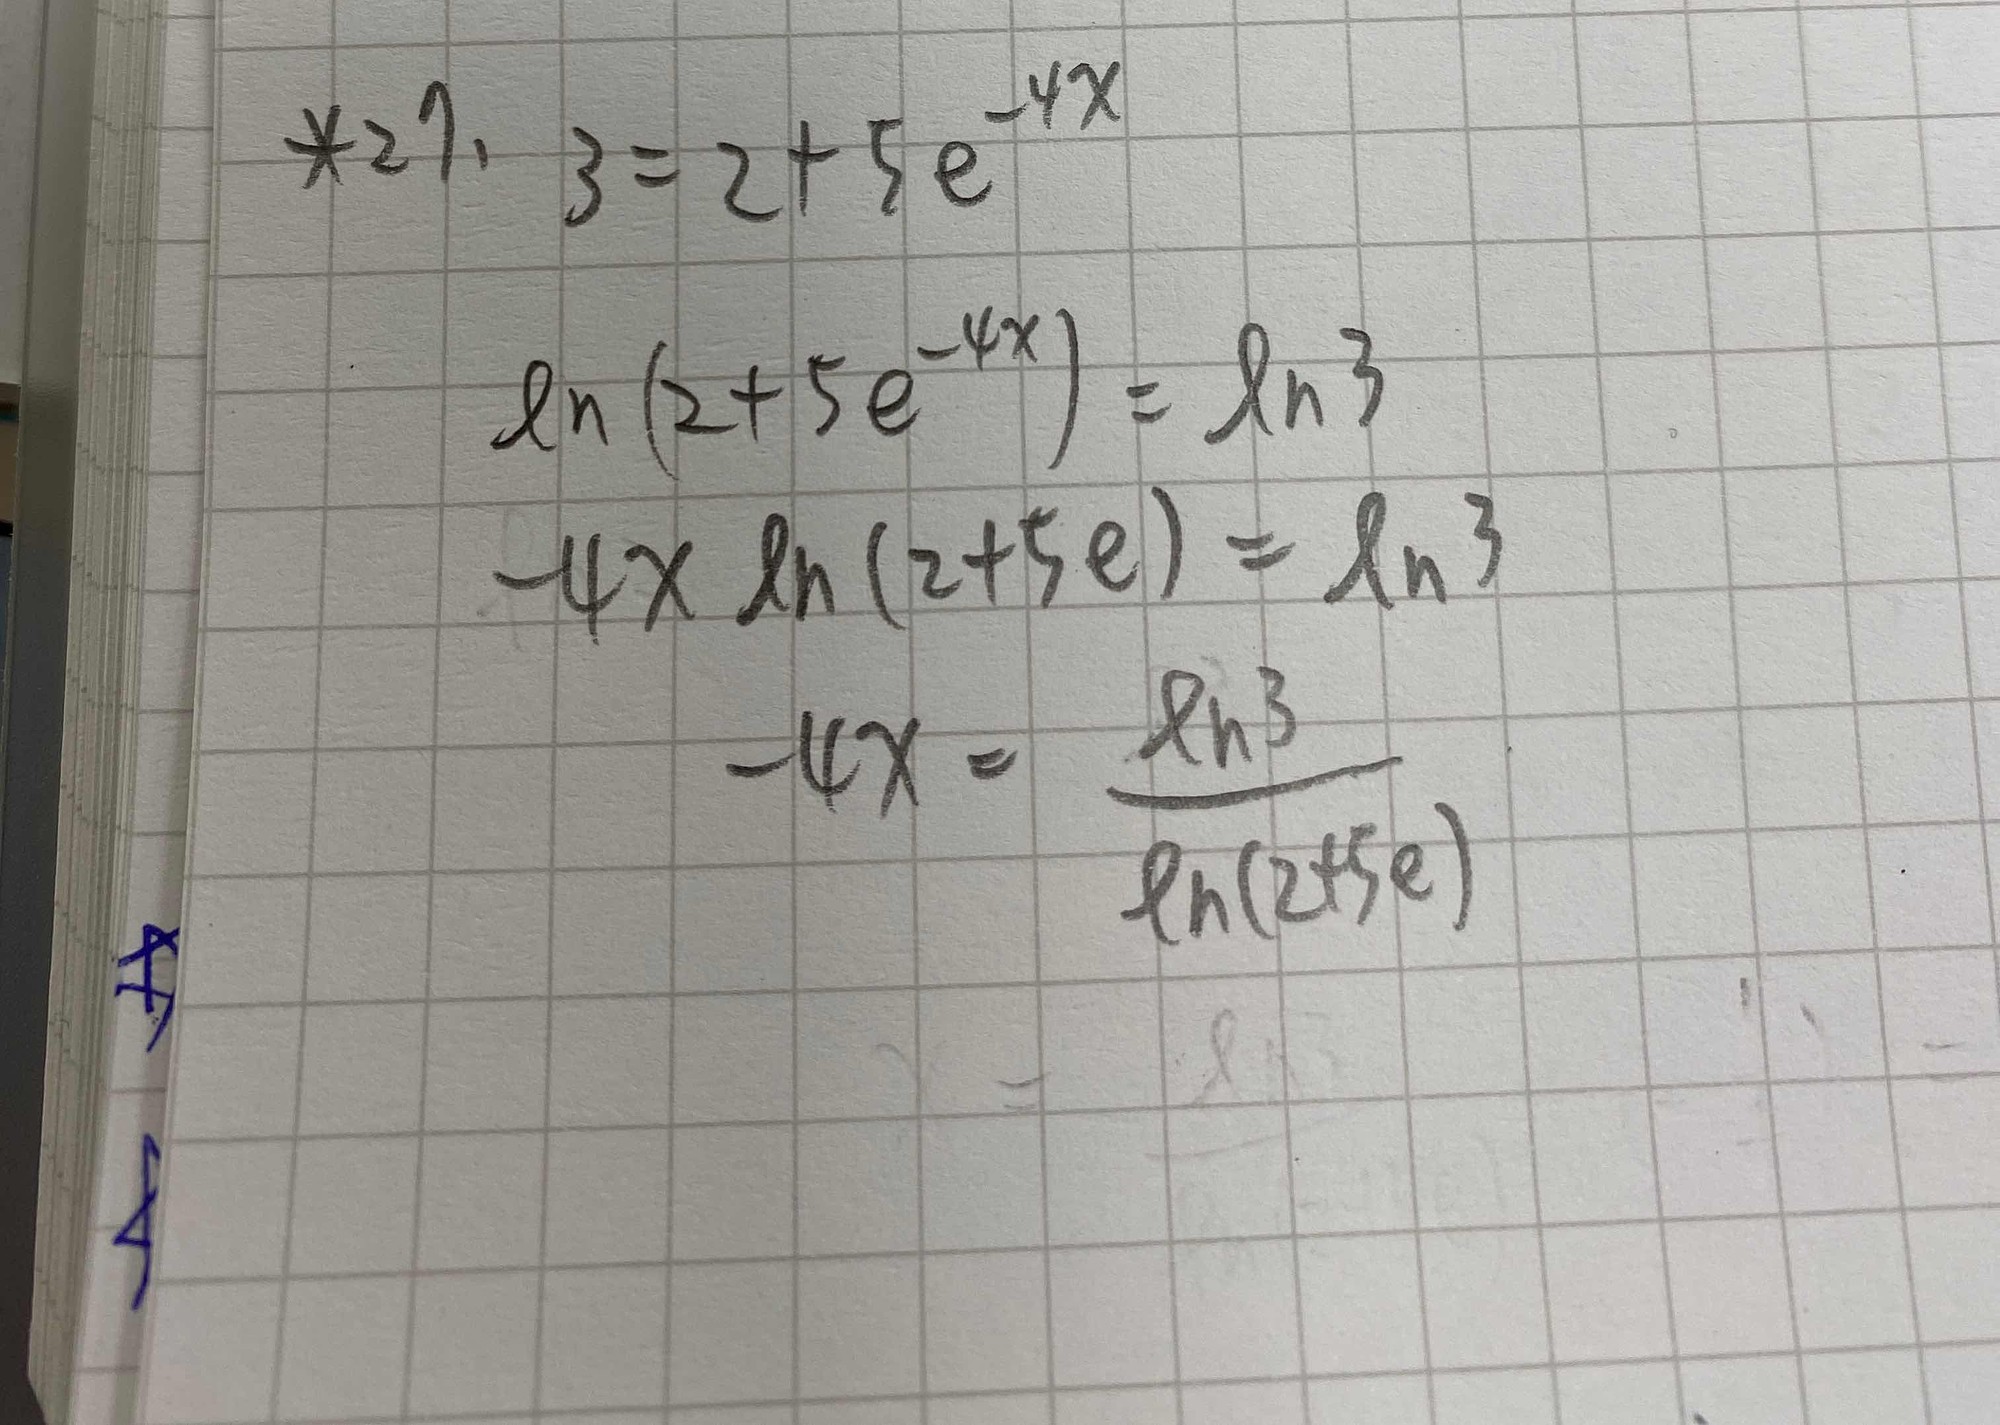 *27. 3 = 2 + 5e^{-4x}
ln(2 + 5e^{-4x}) = ln 3
-4x ln(2+5e) = ln 3
-4x = \frac{ln 3}{ln(2+5e)}